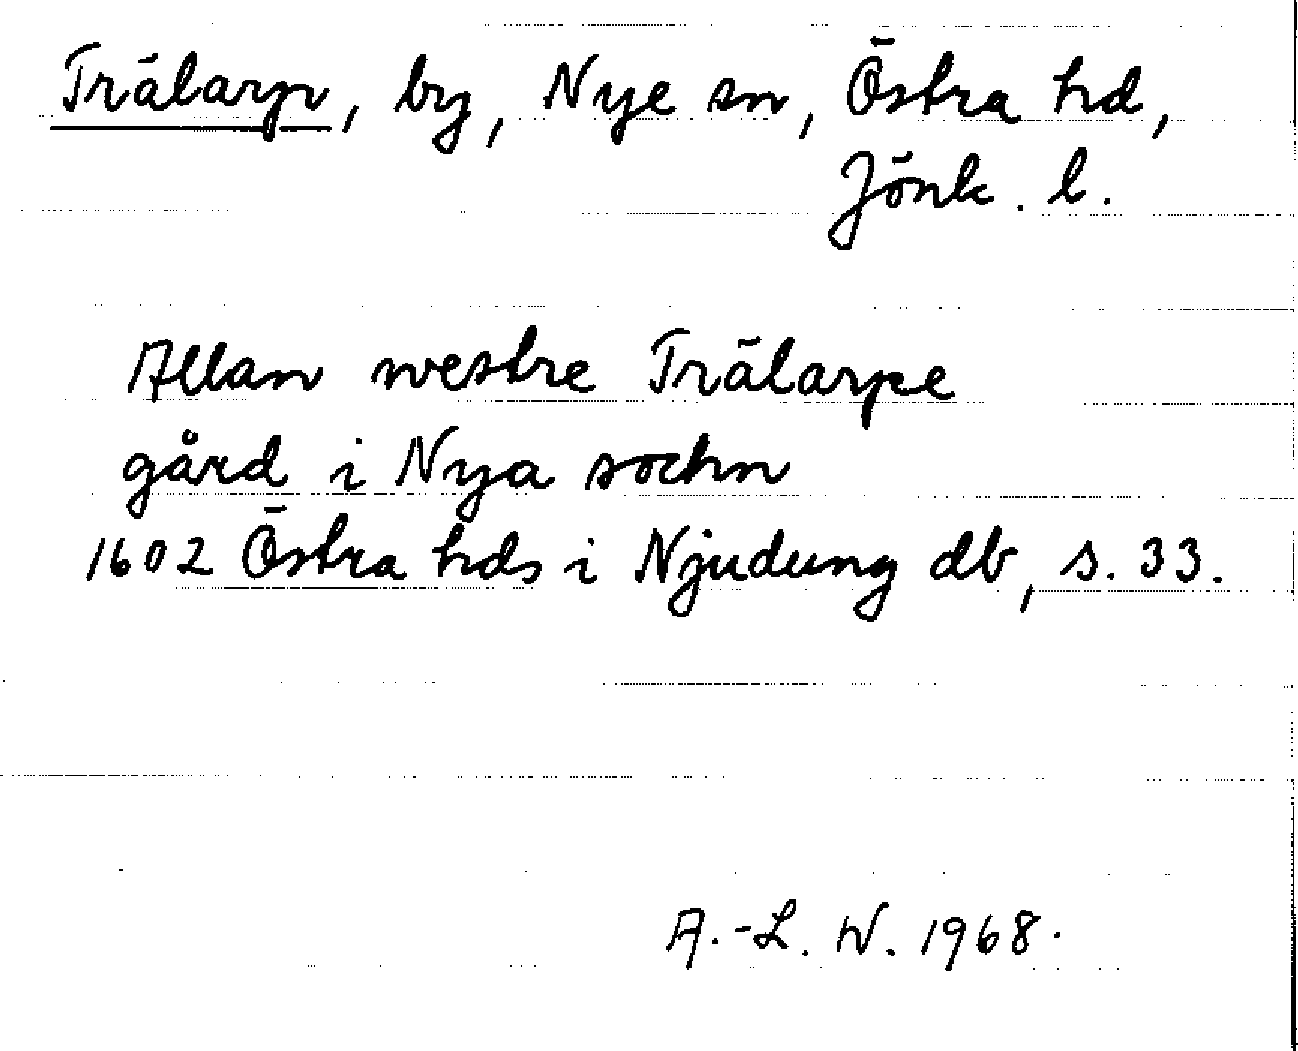 Trälarp, by, Nye sn, Östra hd,
Jönk. l.
Allan westre Trälarpe
gård i Nya sochn
1602 Östra hds i Njudung db, s. 33.
A.-L. W. 1968.